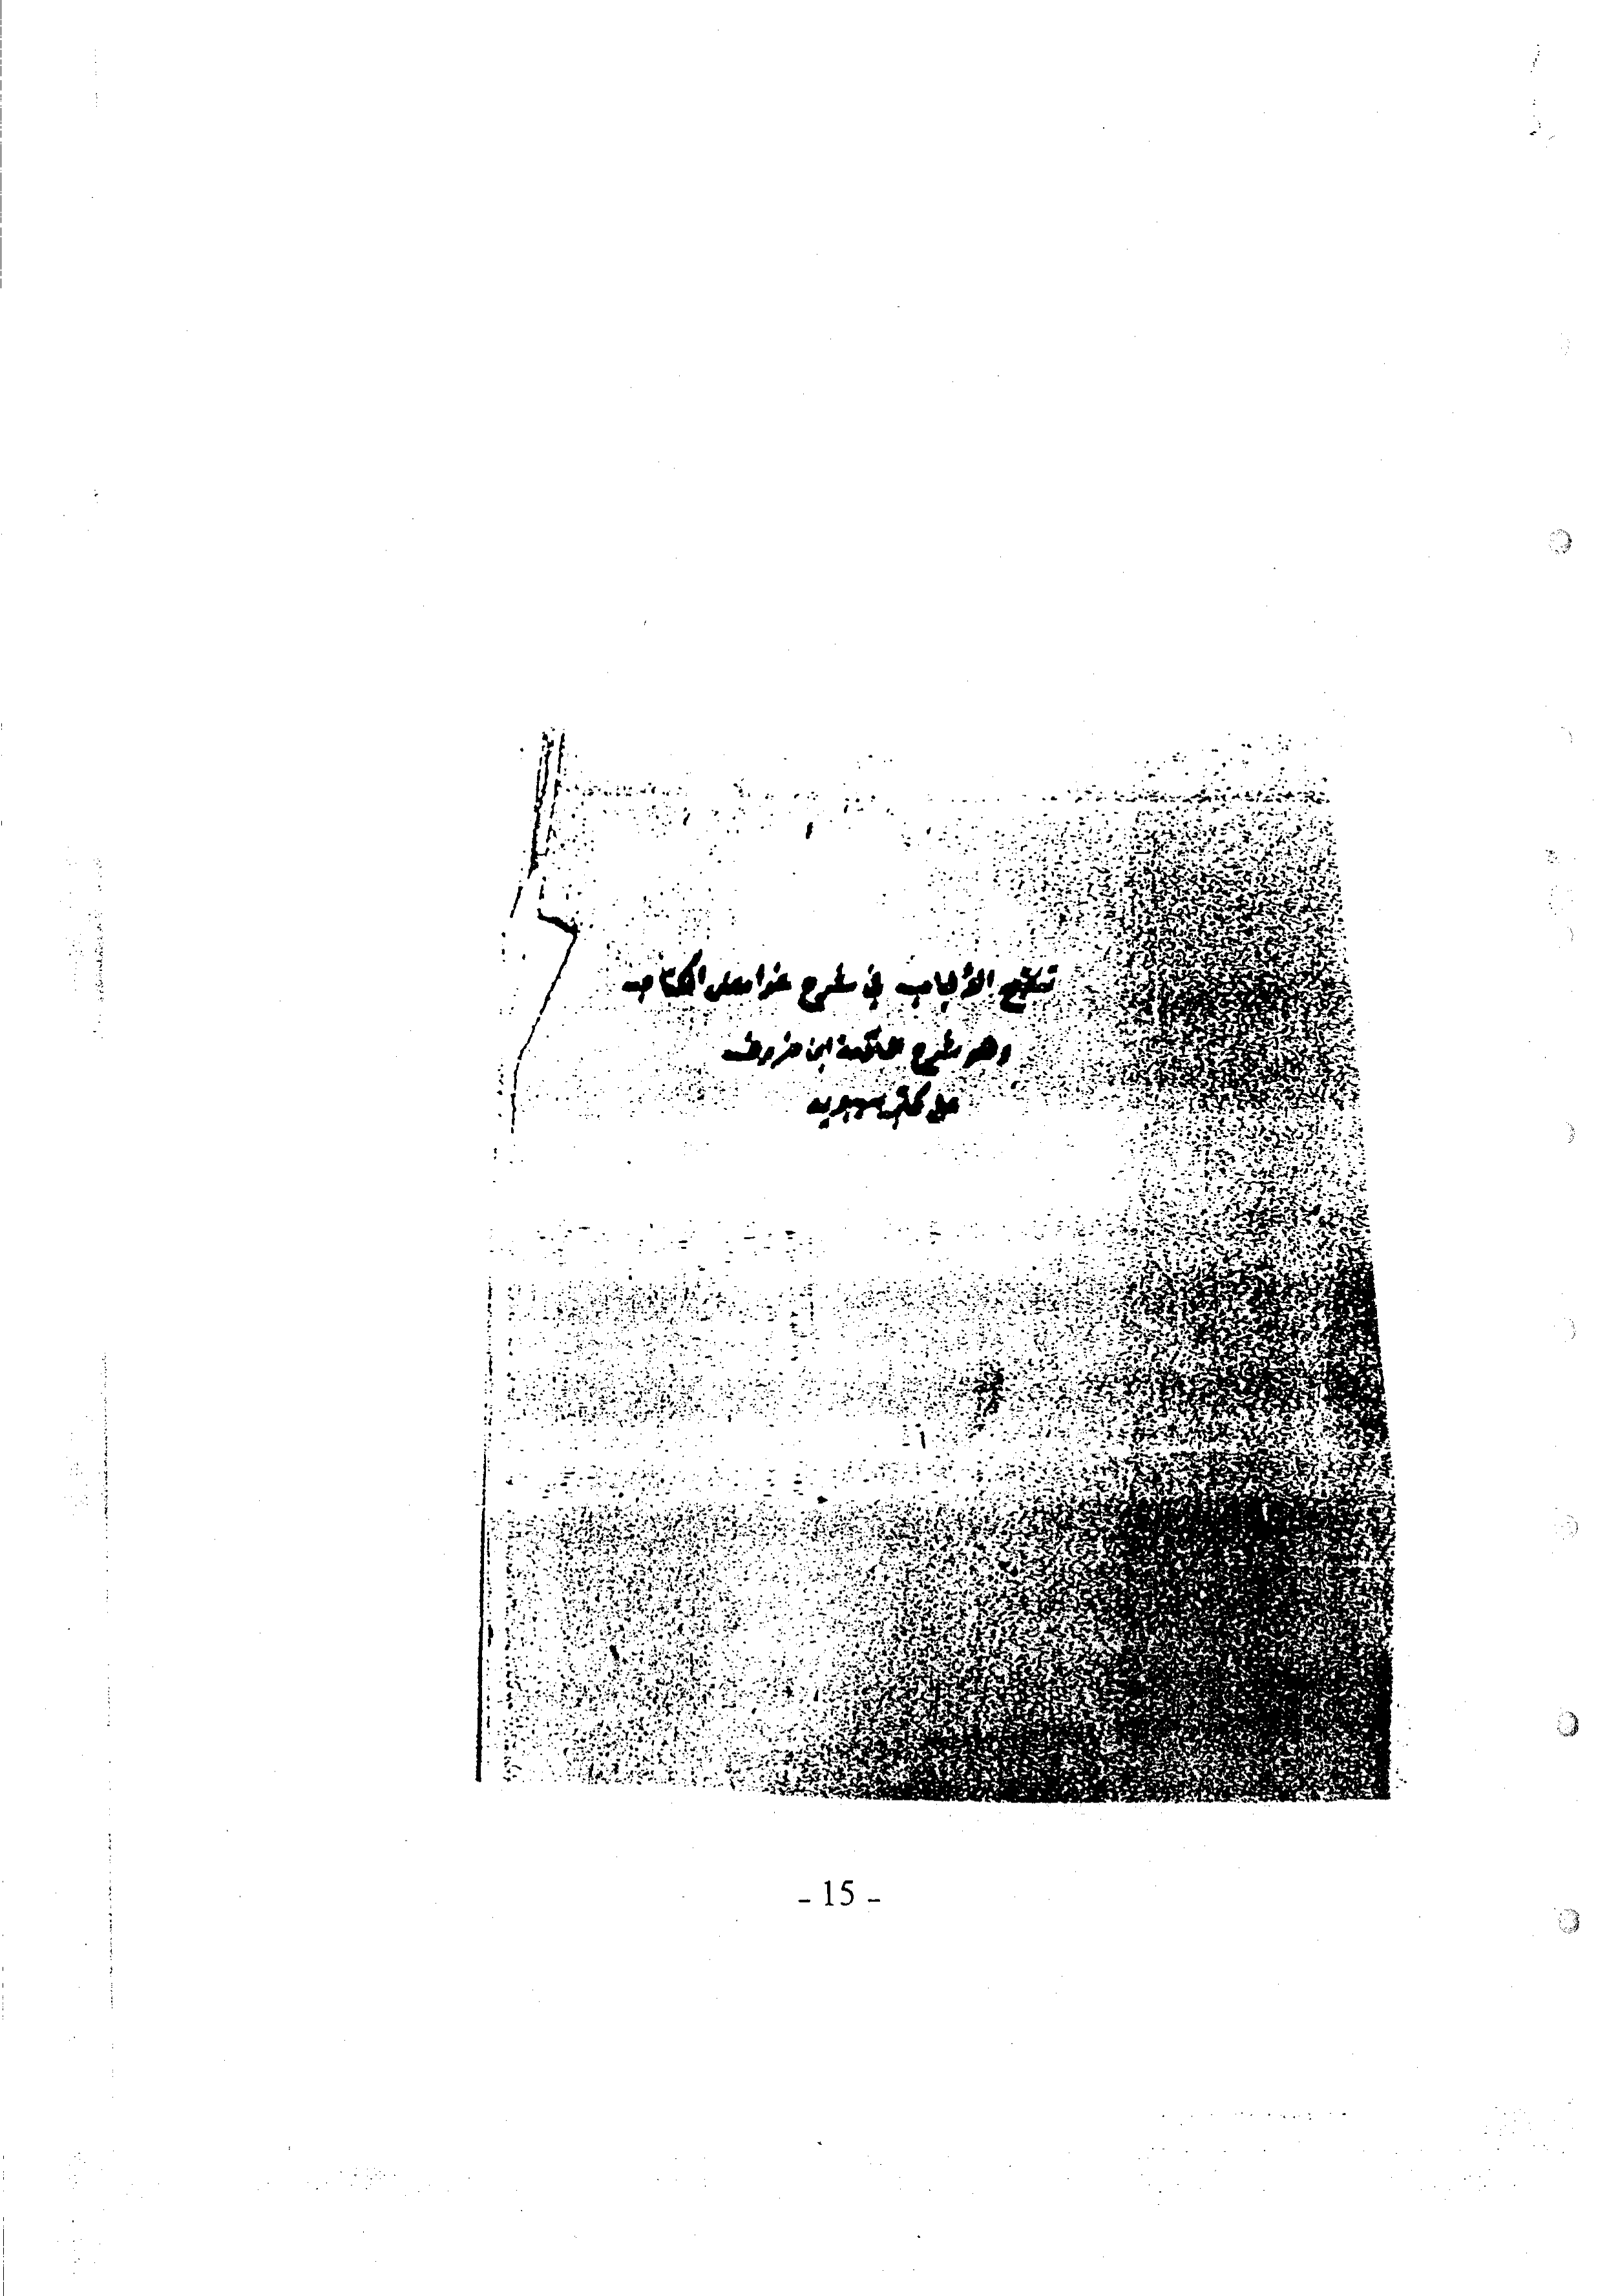 تنقيح الألباب في شرح غوامض الكتاب
وهو شرح العلامة ابن خروف
على كتاب سيبويه
- 15 -